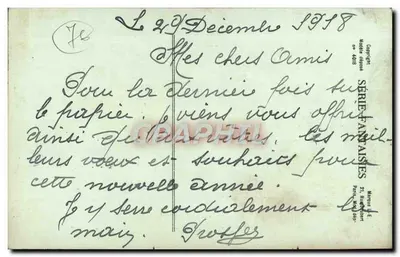 Le 29 Décembre 1918
Mes chers Amis
Pour la dernier fois sur
le papier, je viens vous offrir
ainsi
les meil-
leurs vœux et souhaits pour
cette nouvelle année.
Je y serre cordialement la
main. Prosper
SERIE FANTAISIES
Copyright